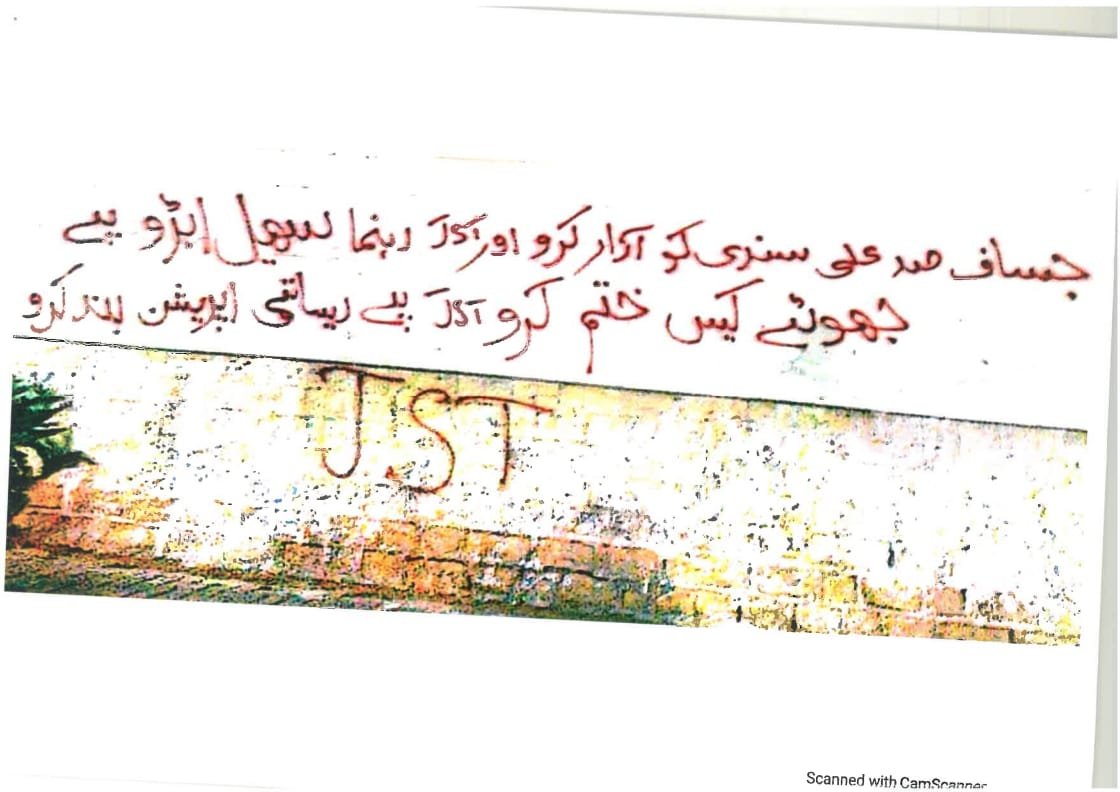 جساف صدر علی سندی کو آزار کرو اور آکاک رہنما سہیل ابڑو پے
جھوٹے کیس ختم کرو آکاک پے ریساتی اپریشن بند کرو
JST
Scanned with CamScanner